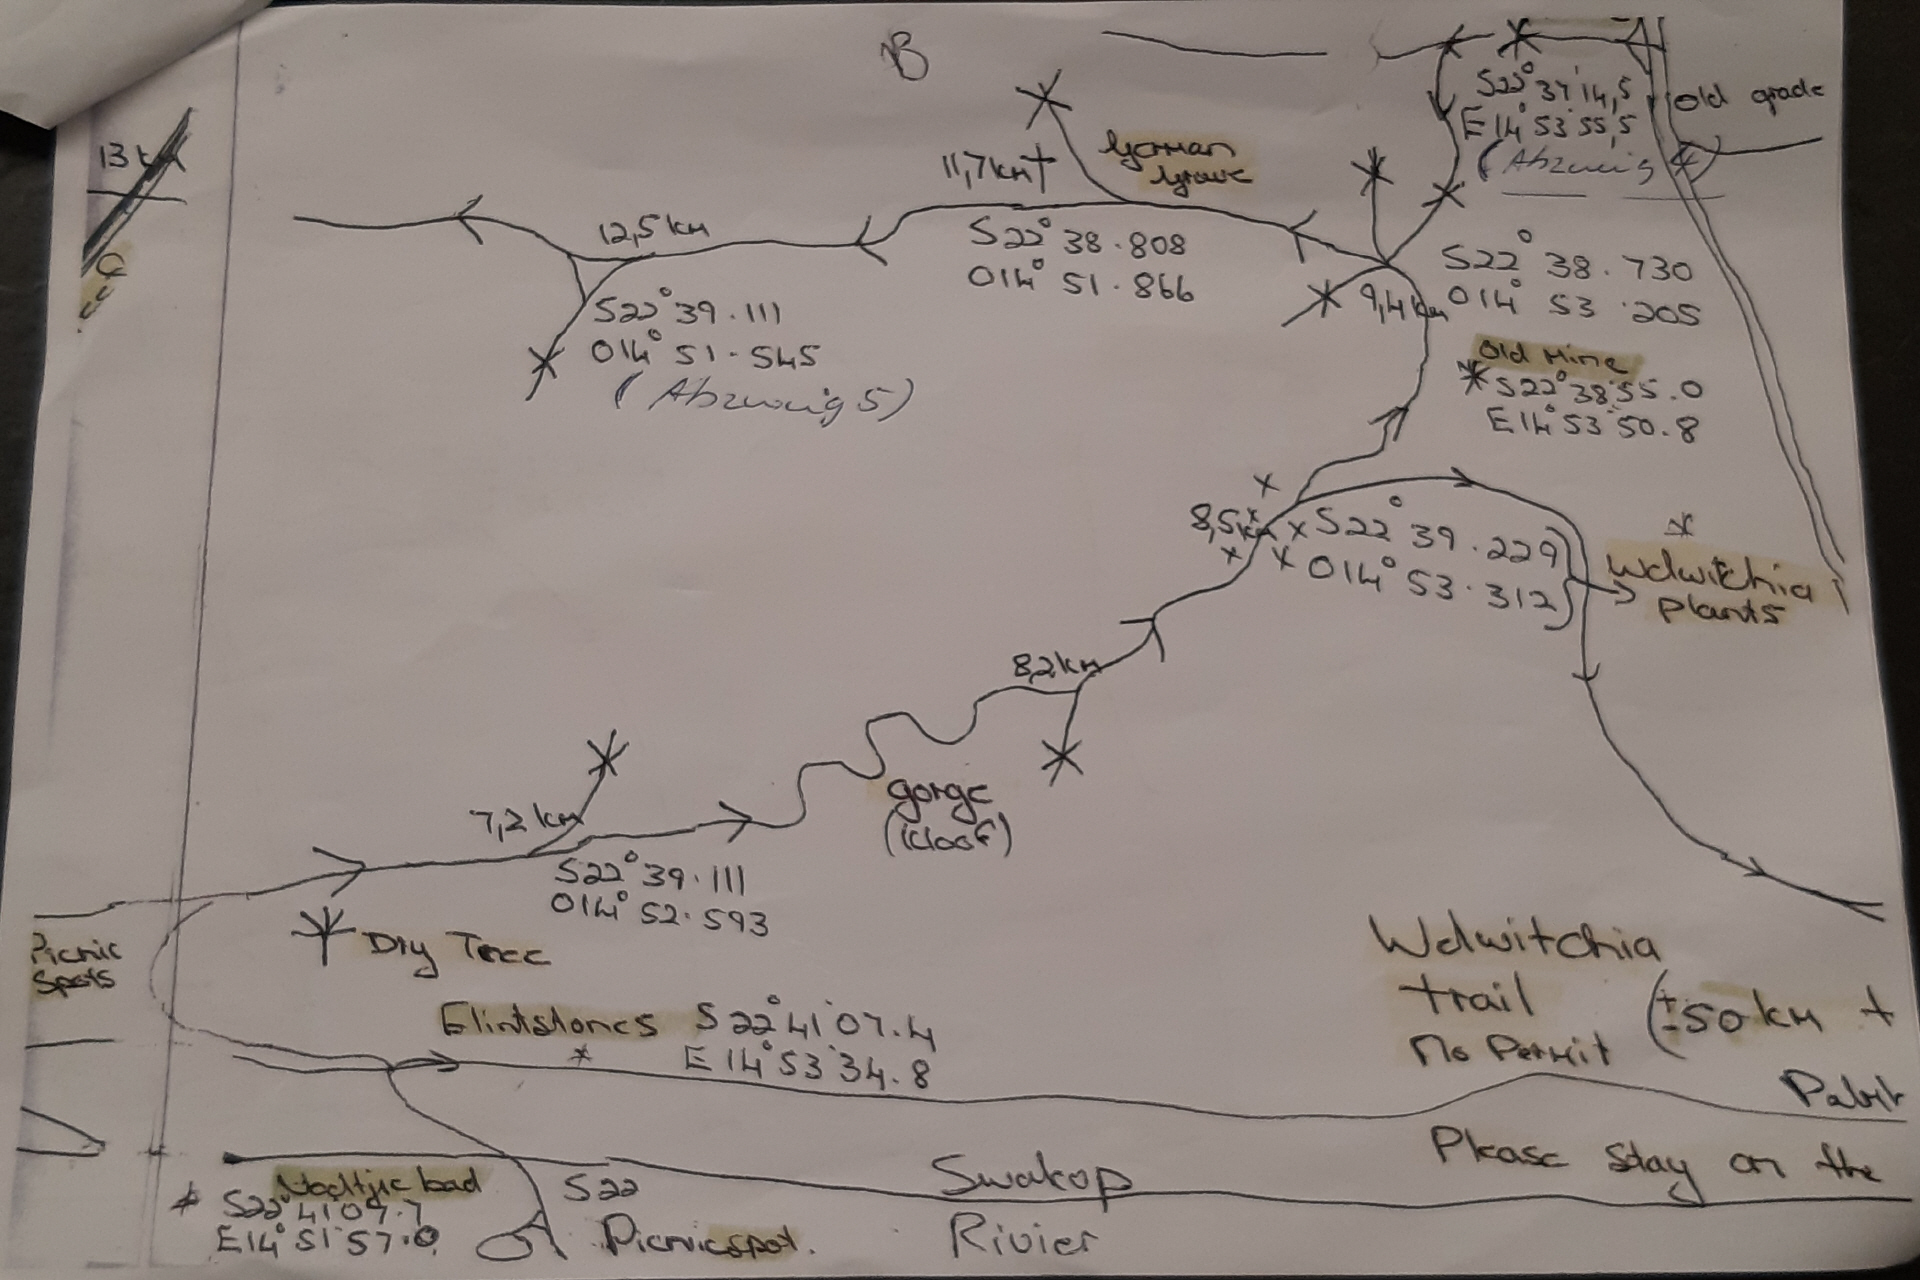 B
S22° 37' 14,5
E 14° 53' 55,5
(Abzweig 4)
Old grade
11,7 km
German
Grave
12,5 km
S22° 38.808
O14° 51.866
S22° 38.730
O14° 53.205
9,4 km
S22° 39.111
O14° 51.545
(Abzweig 5)
Old Mine
S22° 38' 55.0
E14° 53' 50.8
8,5 km
S22° 39.229
O14° 53.312
Welwitchia
Plants
8,2 km
7,2 km
gorge
(kloof)
S22° 39.111
O14° 52.593
Dry Tree
Picnic
Spots
Flintstones S22° 41' 07.4
E14° 53' 34.8
Welwitchia
trail (±50 km +
No Permit
Please stay on the
S22° 41' 09.7
E14° 51' 57.0
S22
Picnicspot.
Swakop
Rivier